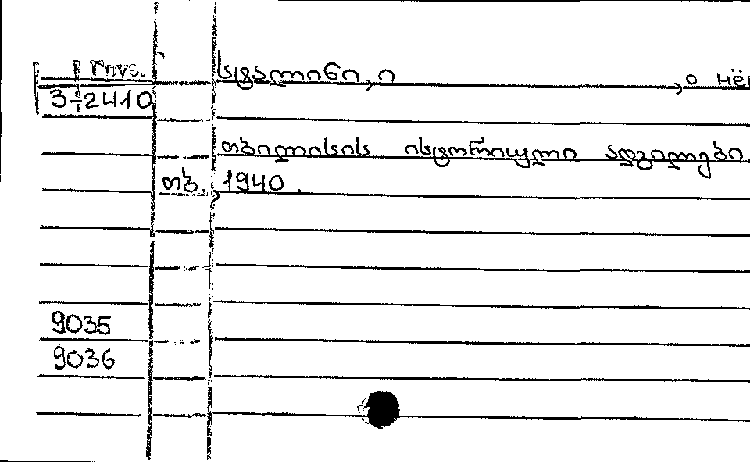 სტალინი, ი , о нём
3÷2410
თბილისის ისტორიული ადგილები.
თბ., 1940.
9035
9036